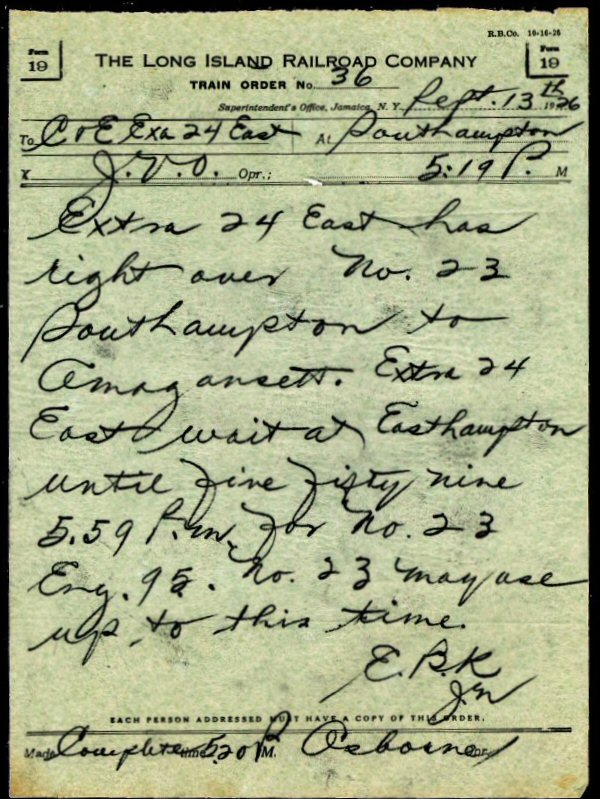 R.B.Co. 10-16-25
Form 19
THE LONG ISLAND RAILROAD COMPANY
Form 19
TRAIN ORDER No. 36
Superintendent's Office, Jamaica, N. Y. Sept. 13th 1926
To C & E Exa 24 East At Southampton
X J.V.O. Opr.; 5:19 P. M
Extra 24 East has
right over No. 23
Southampton to
Amagansett. Extra 24
East wait at Easthampton
until five fifty nine
5.59 P.m. for No. 23
Eng. 95. No. 23 may use
up to this time.
E.B.K
EACH PERSON ADDRESSED MUST HAVE A COPY OF THIS ORDER.
Made Complete time 5.20 P M. Osborne Opr.